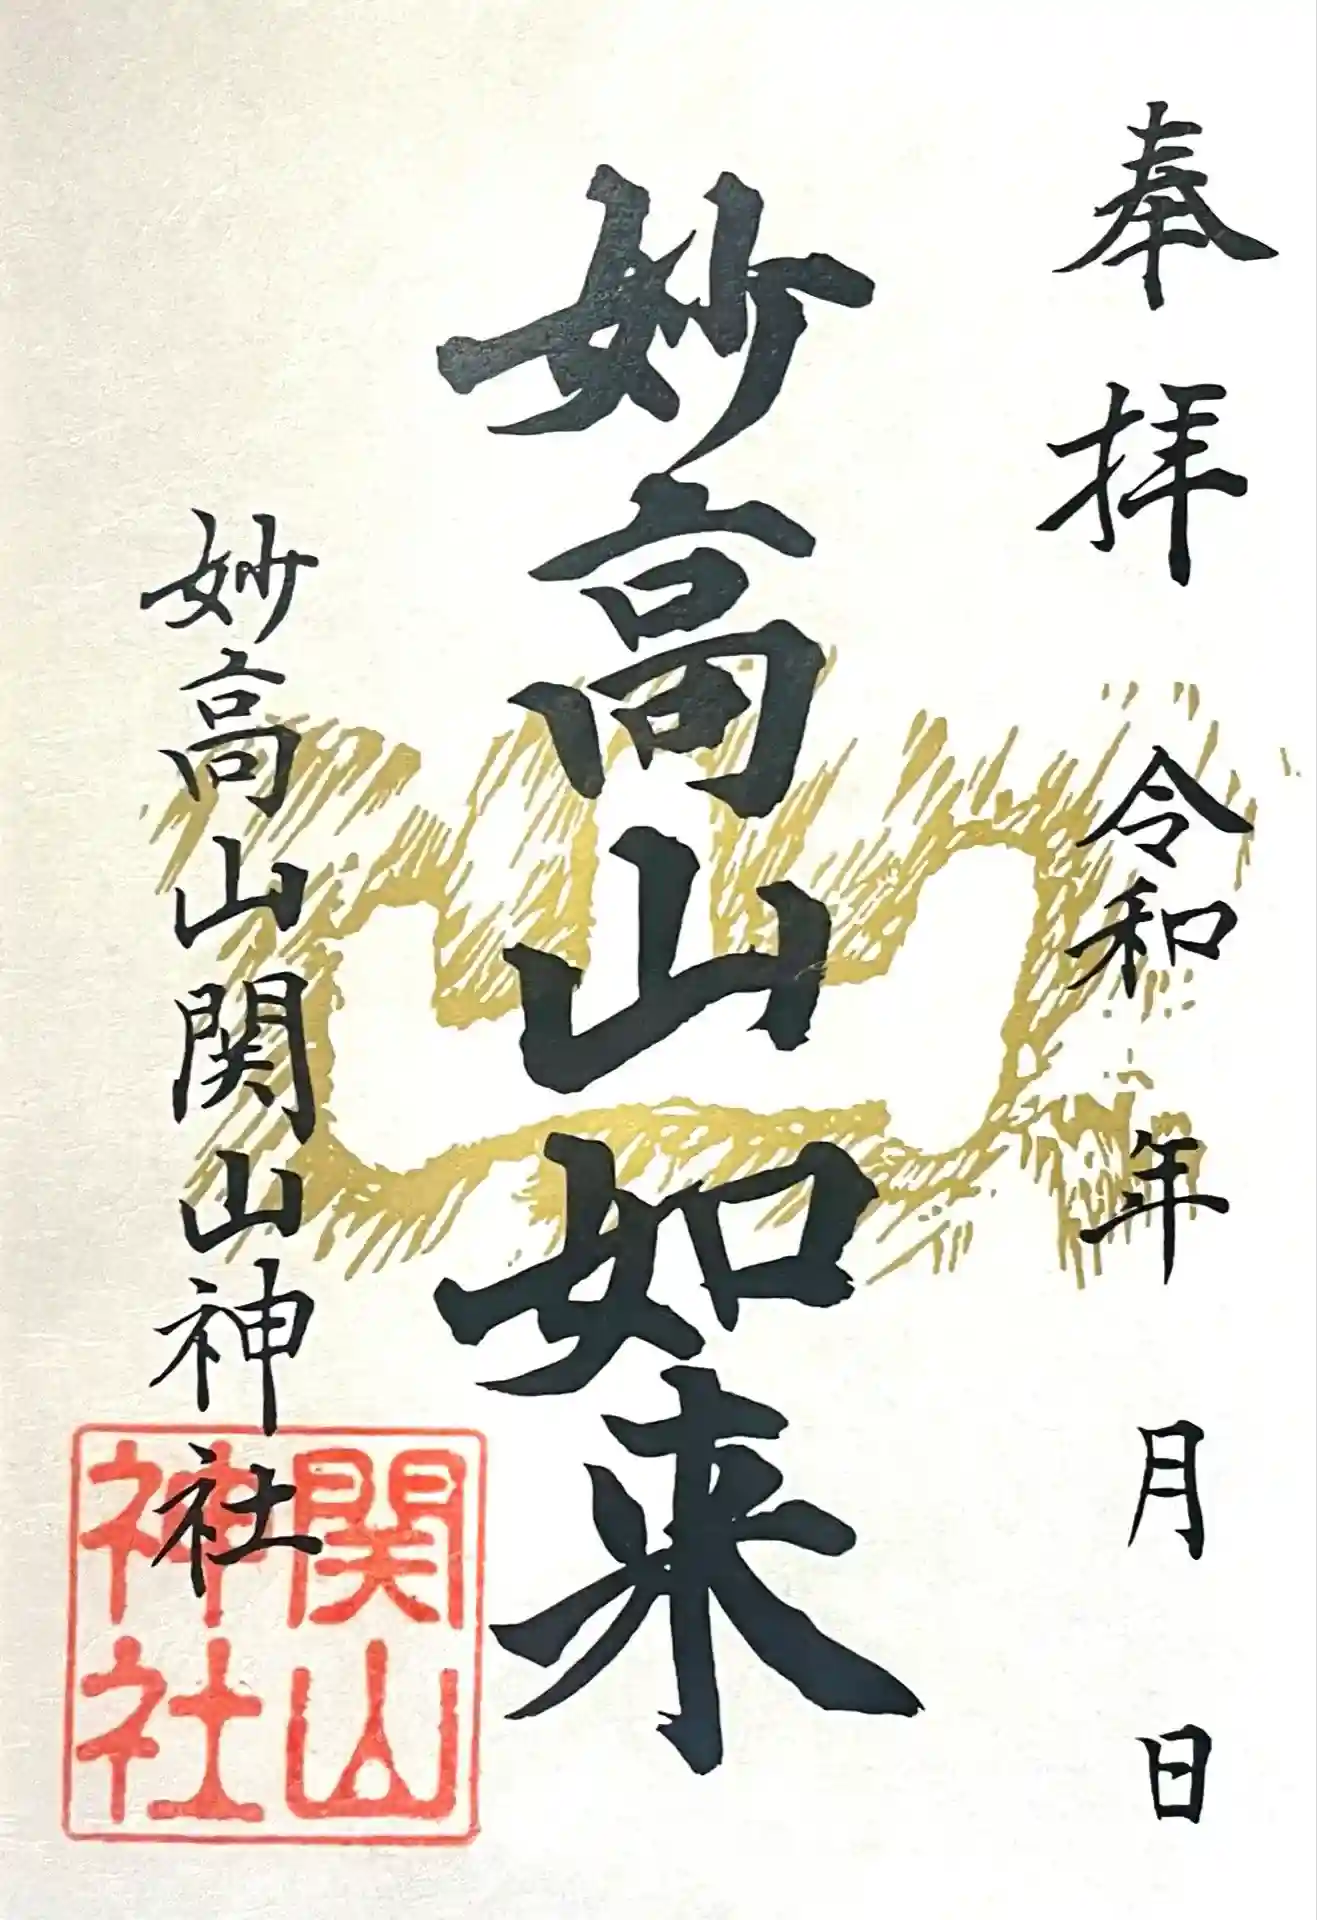 奉拝 令和 年 月 日
妙高山如来
妙高山関山神社
関山
神社